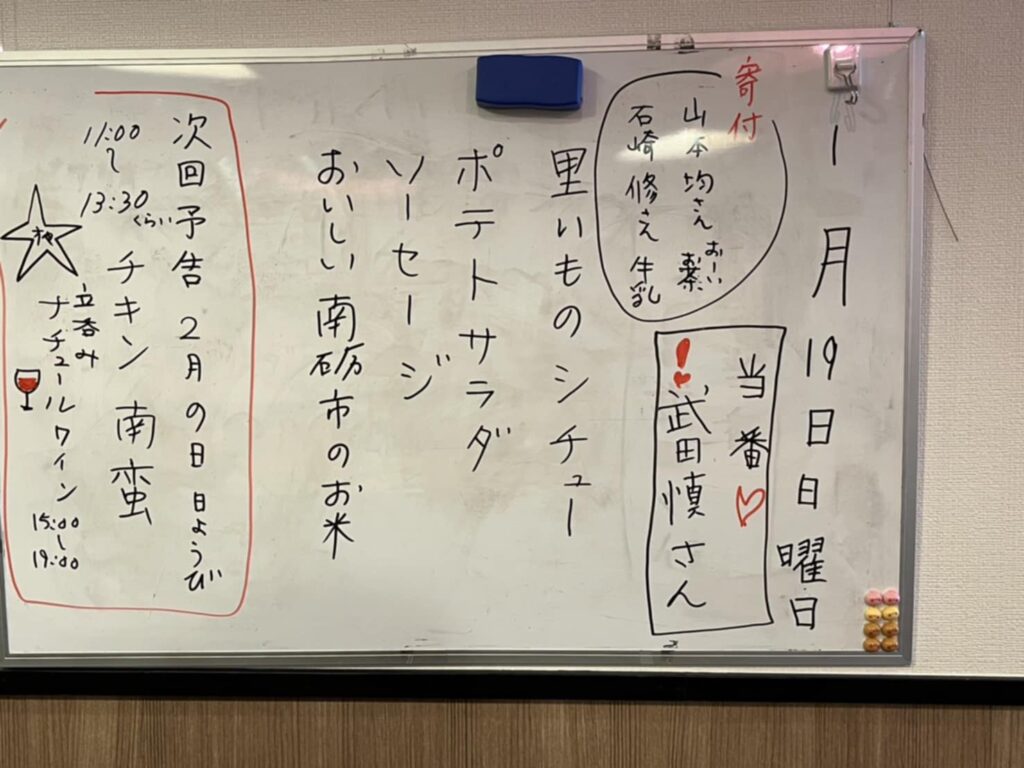 1月19日日曜日
寄付
山本均さん
おーい
石崎修さん 牛乳
当番
！武田慎さん
里いものシチュー
ポテトサラダ
ソーセージ
おいしい南砺市のお米
次回予告 2月の日 日ようび
11:00
〜
13:30
くらい
チキン南蛮
立呑み
ナチュールワイン
15:00
〜
19:00